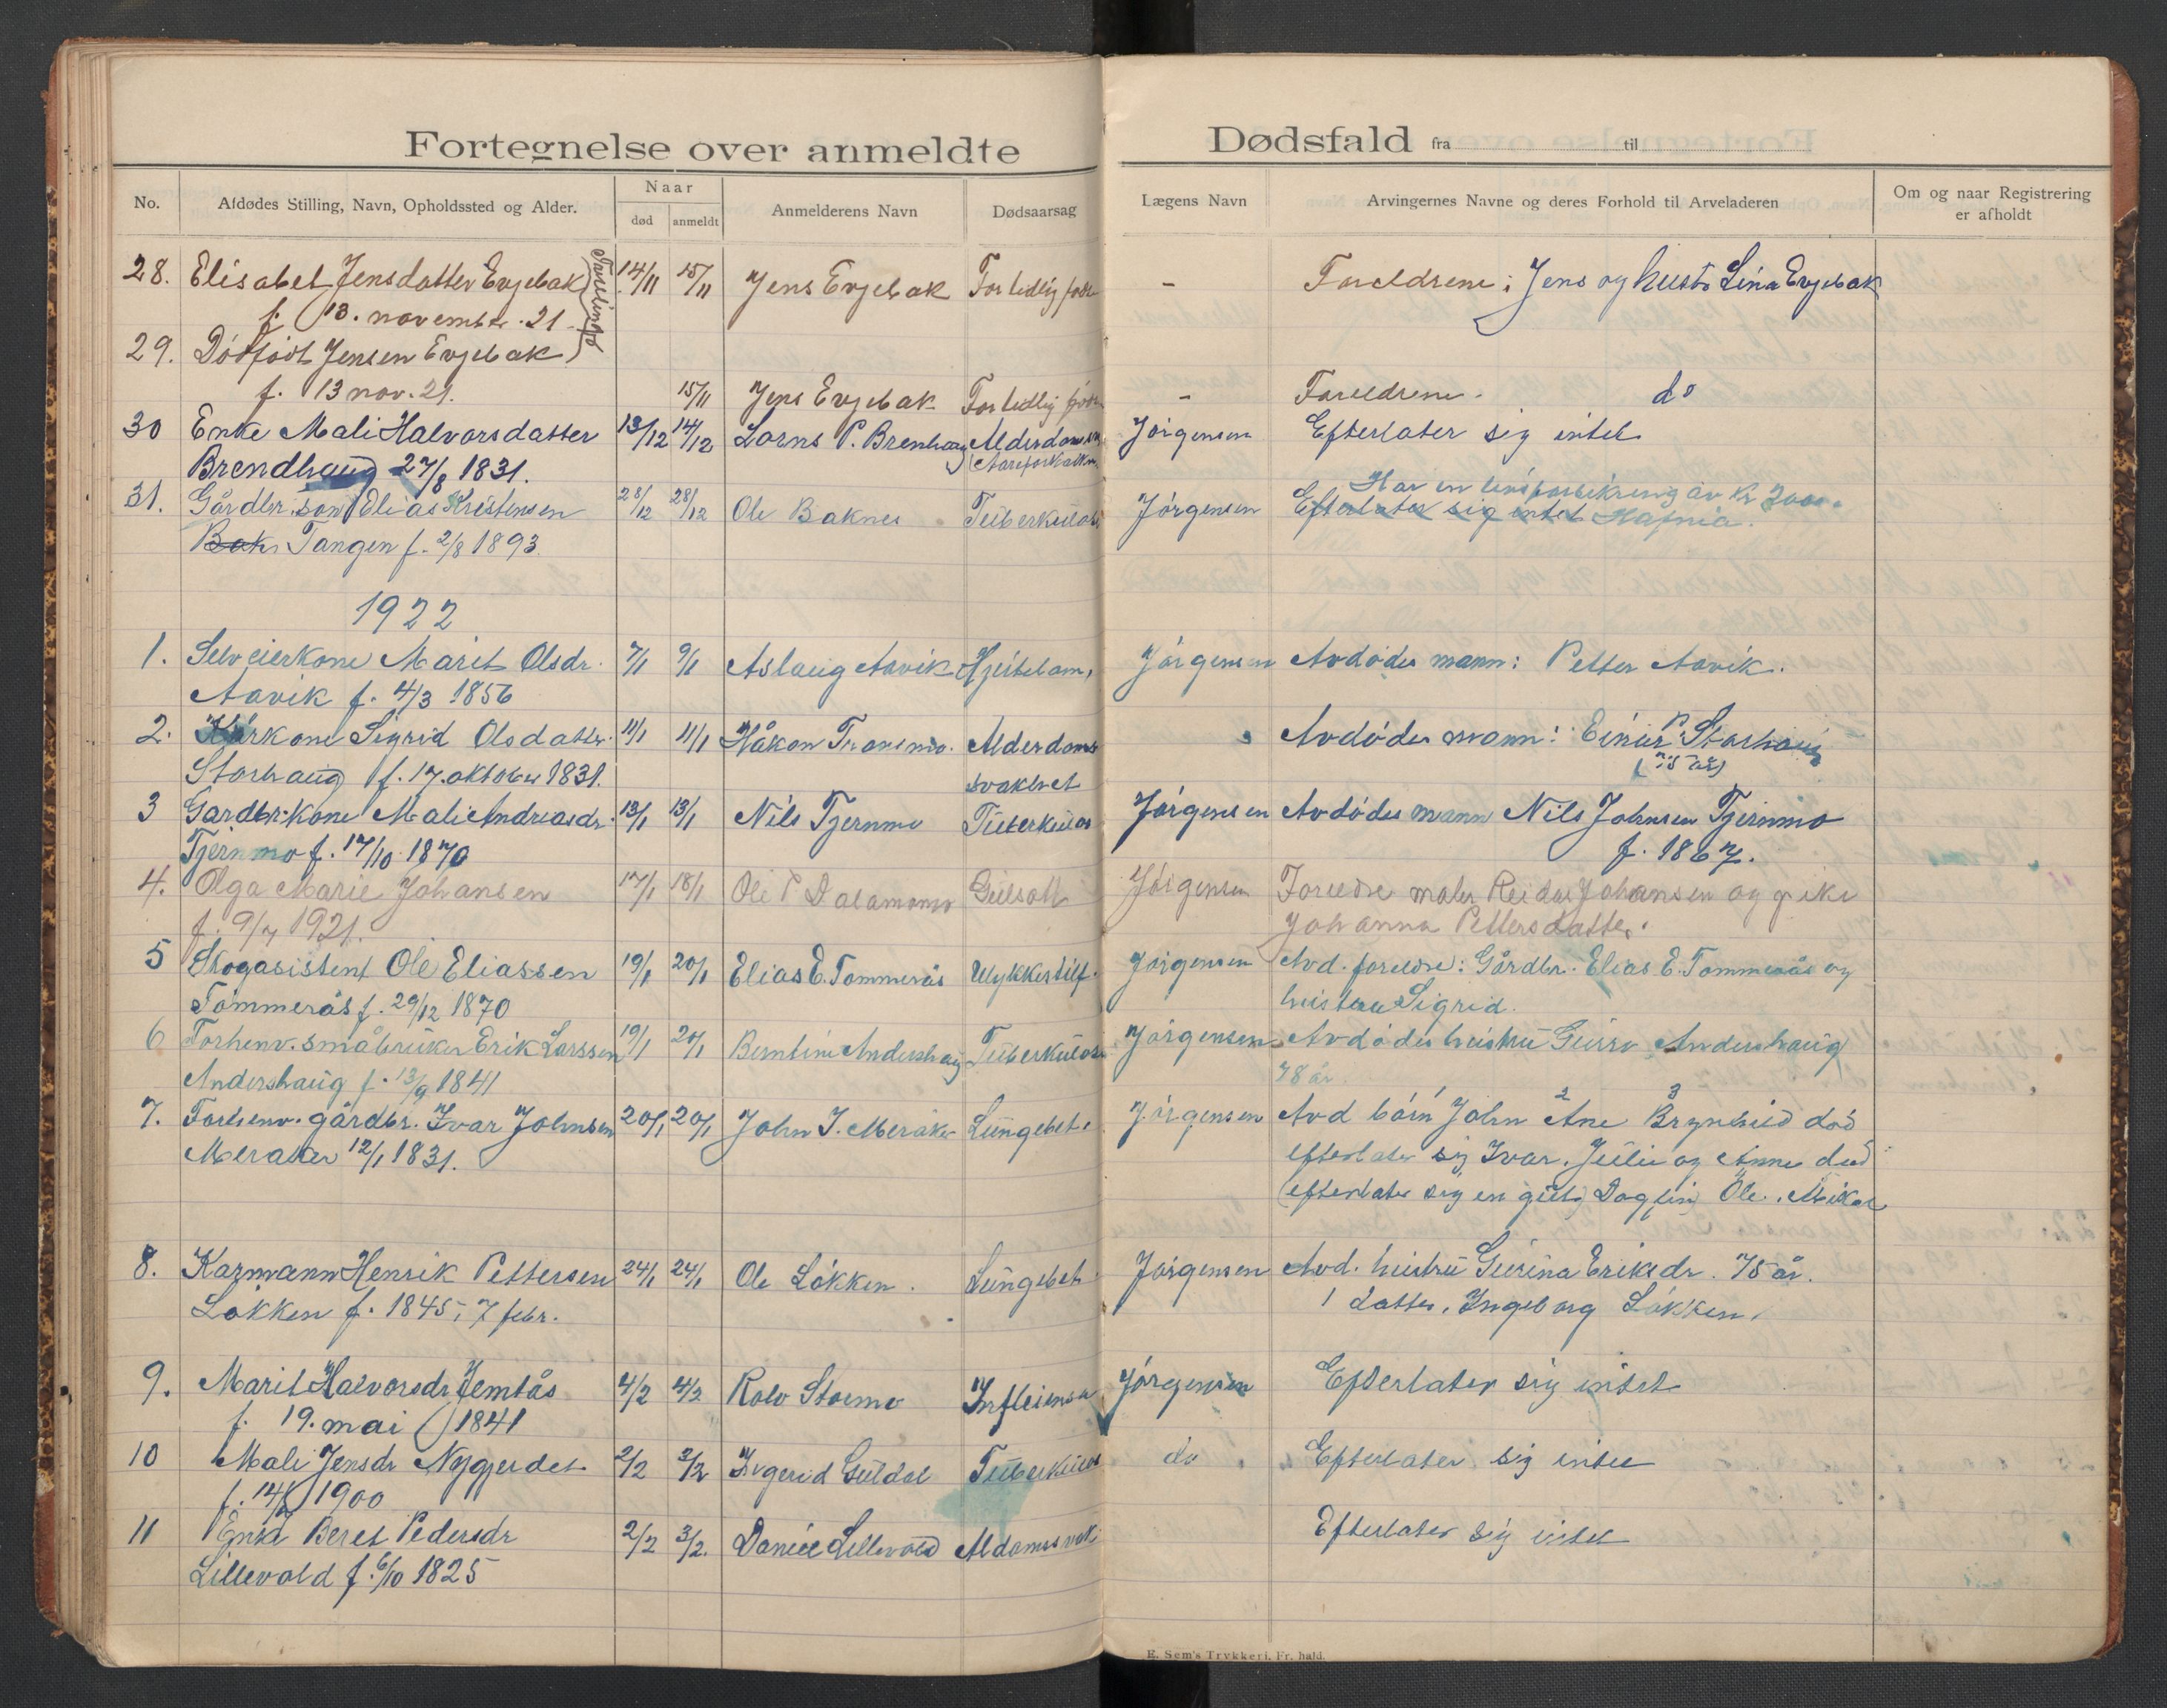 Fortegnelse over anmeldte Dødsfald fra til
No. Afdødes Stilling, Navn, Opholdssted og Alder. Naar død anmeldt Anmelderens Navn Dødsaarsag Lægens Navn Arvingernes Navne og deres Forhold til Arveladeren Om og naar Registrering er afholdt
28. Elisabet Jensdatter Evjebak 14/11 15/11 Jens Evjebak For tidlig født - Foreldrene: Jens og hustr Lina Evjebak
f. 13. november. 21 Tvillinger
29. Dødfødt Jensen Evjebak
f. 13 nov. 21. 15/11 Jens Evjebak For tidlig født - Foreldrene. do
30 Enke Mali Halvorsdatter 13/12 14/12 Lorns P. Brenhaug Alderdoms Jørgensen Efterlater sig intet
Brendhaug 27/8 1831.
31. Gårdbr. søn Elias Kristensen 28/12 28/12 Ole Baknes Tuberkulose Jørgensen Efterlater sig intet Hafnia.
Har en livsforsikring av Kr 2000.
Bakn Tangen f. 2/8 1893.
1922
1. Selveierkone Marit Olsdr. 7/1 9/1 Aslaug Aavik Hjertelam, Jørgensen Avdødes mann: Petter Aavik.
Aavik f. 4/3 1856
2. Kårkone Sigrid Olsdatter. 11/1 11/1 Håkon Tronsmo. Alderdoms Avdødes mann: Einar P. Storhaug
Storhaug f. 17. oktober 1831. svakhet (75 år)
3 Gardbr.kone Mali Andreasdr. 13/1 13/1 Nils Tjernmo Tuberkulos Jørgensen Avdødes mann Nils Johnsen Tjernmo
Tjernmo f. 17/10 1870 f. 1867.
4. Olga Marie Johansen 17/1 18/1 Ole P Dalamomo Gulsott Jørgensen Foreldre maler Reidar Johansen og pike
f. 9/7 1921. Johanna Pettersdatter.
5 Skogasistent Ole Eliassen 19/1 20/1 Elias E. Tømmerås Ulykkestilf. Jørgensen Avd. foreldre: Gårdbr. Elias E. Tømmerås og
Tømmerås f. 29/12 1870 hustru Sigrid.
6 Forhenv. småbruker Erik Larssen 19/1 20/1 Berntine Andershaug Tuberkulose Jørgensen Avdødes hustru Guru Andershaug
Andershaug f. 13/9 1841 78 år.
7. Forhenv. gårdbr. Ivar Johnsen 20/1 20/1 John I. Meråker Lungebet. Jørgensen Avd børn John 2 Ane 3 Brynhild død
Meraker 12/1 1831. efterlater sig Ivar, Julie og Anne død
(efterlater sig en gut) Dagfin Ole. Mikal
8. Karmann Henrik Pettersen 24/1 24/1 Ole Løkken. Lungebet. Jørgensen Avd. hustru Gurina Eriksdr. 75 år.
Løkken f. 1845, 7 febr. 1 datter, Ingeborg Løkken,
9. Marit Halvorsdr Jemtås 4/2 4/2 Rolv Stormo Influensa Jørgensen Efterlater sig intet
f. 19. mai 1841
10 Mali Jensdr Nygjerdet 2/2 3/2 Ingerid Guldal Tuberkulos do Efterlater sig intet
1900
11 Enke Beret Pedersdr 2/2 3/2. Daniel Lillevold Aldomssvak. Efterlater sig intet
Lillevold f. 6/10 1825
E. Sem's Trykkeri, Fr. hald.